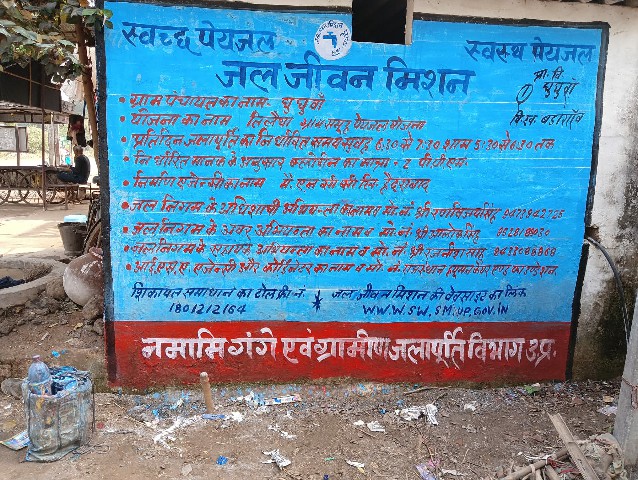 स्वच्छ पेयजल
स्वस्थ पेयजल
जल जीवन मिशन
प्रा. वि.
घुघुवाँ
वि.ख. बडागाँव
• ग्राम पंचायत का नाम- घुघुवाँ
• योजना का नाम ग्राम समूह पेयजल योजना
• प्रतिदिन जलापूर्ति का निर्धारित समय सुबह 6.30 से 7.30 शाम 5:30 से 6.30 तक
• निर्धारित मानक के अनुसार क्लोरीन का मात्रा = 2 पी.पी.एम.
• निर्माण एजेन्सी का नाम मै. एन सी सी लि. हैदराबाद
• जल निगम के अधिशासी अभियन्ता का नाम व मो. नं. श्री
• जल निगम के अवर अभियन्ता का नाम व मो. नं. श्री
• जल निगम के सहायक अभियन्ता का नाम व मो. नं. श्री
• आई.एस.ए एजेन्सी और कोर्डिनेटर का नाम व मो. नं. राजस्थान
शिकायत समाधान का टोल फ्री नं.
जल जीवन मिशन की वेबसाइट का लिंक
1801212164
WWW.SWSM.UP.GOV.IN
नमामि गंगे एवं ग्रामीण जलापूर्ति विभाग उ.प्र.